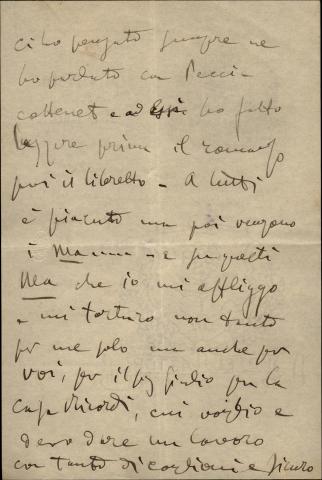 ci ho pensato sempre ne
ho parlato con Peccia
cottenet e ad essi ho fatto
leggere prima il romanzo
poi il libretto – A tutti
è piaciuto ma poi vengono
i Ma – e per questi
Ma che io mi affliggo
e mi torturo non tanto
per me solo ma anche per
voi, per il per la
Casa Ricordi, cui voglio e
devo dare un lavoro
con tanto di coglioni e sicuro